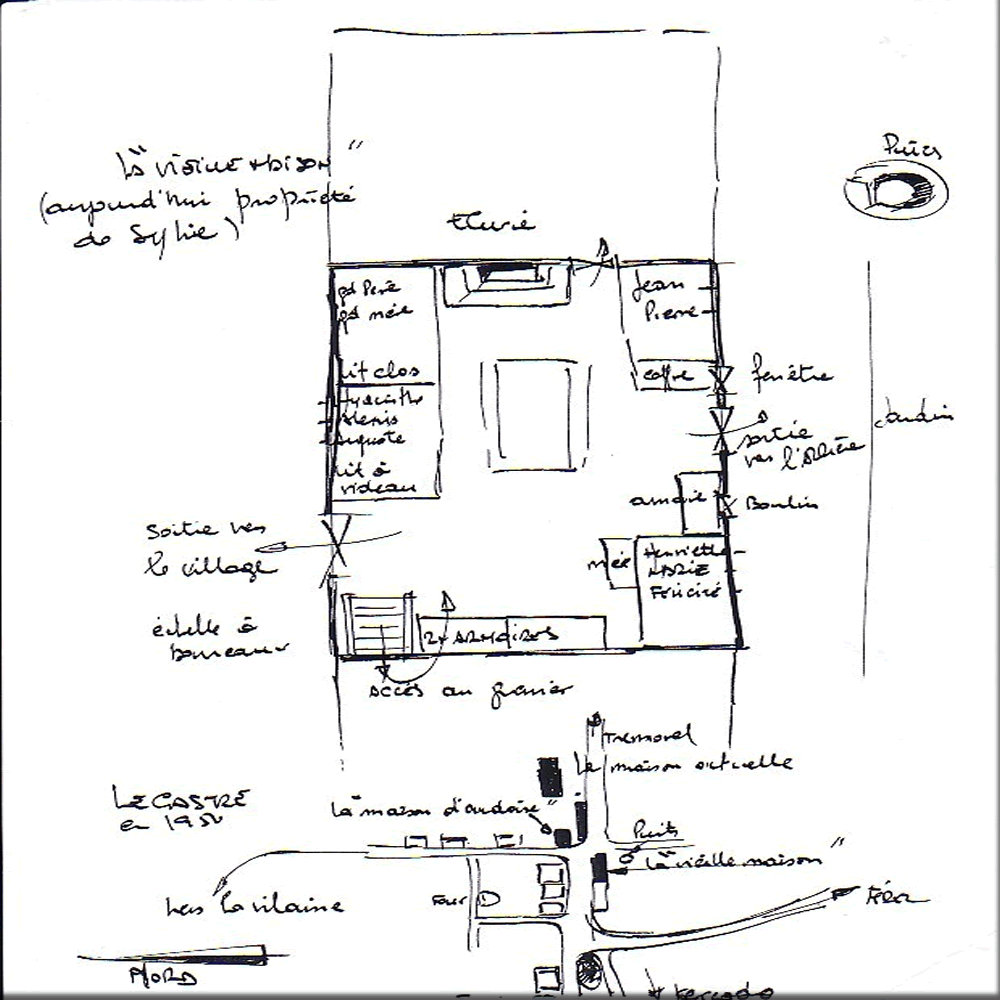 La "vieille maison"
(aujourd'hui propriété
de Sylvie)
Puits
gd Père
gd mère
lit clos
Hyacinthe
Alexis
Auguste
lit à
rideau
Jean
Pierre
coffre
fenêtre
Jardin
sortie
vers
armoire
Henriette
MARIE
Félicité
Sortie vers
le village
échelle à
barreaux
2 ARMOIRES
accès au grenier
Tremorel
La maison actuelle
LE CASTRE
en
La "maison d'ardoise"
Puits
La "vieille maison"
Four
vers la vilaine
NORD